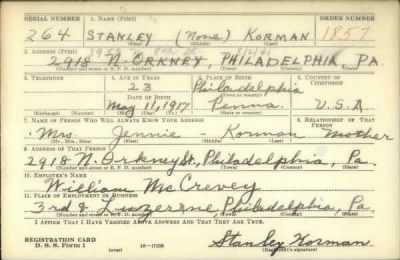 SERIAL NUMBER 1. NAME (Print) ORDER NUMBER
264 STANLEY (None) KORMAN 1857
(First) (Middle) (Last)
2. ADDRESS (Print)
2918 N. ORKNEY, PHILADELPHIA PA.
(Number and street or R. F. D. number) (Town) (County) (State)
3. TELEPHONE 4. AGE IN YEARS 5. PLACE OF BIRTH 6. COUNTRY OF CITIZENSHIP
23 Philadelphia
DATE OF BIRTH (Town or county)
May 11, 1917 Penna. U.S.A
(Exchange) (Number) (Mo.) (Day) (Yr.) (State or country)
7. NAME OF PERSON WHO WILL ALWAYS KNOW YOUR ADDRESS 8. RELATIONSHIP OF THAT PERSON
Mrs. Jennie - Korman Mother
(Mr., Mrs., Miss) (First) (Middle) (Last)
9. ADDRESS OF THAT PERSON
2918 N. Orkney St., Philadelphia, Pa.
(Number and street or R. F. D. number) (Town) (County) (State)
10. EMPLOYER'S NAME
William McCrevey
11. PLACE OF EMPLOYMENT OR BUSINESS
3rd & Luzerene, Philadelphia, Pa
(Number and street or R. F. D. number) (Town) (County) (State)
I AFFIRM THAT I HAVE VERIFIED ABOVE ANSWERS AND THAT THEY ARE TRUE.
REGISTRATION CARD
D. S. S. Form 1 (over) 16—17105 Stanley Korman
(Registrant's signature)